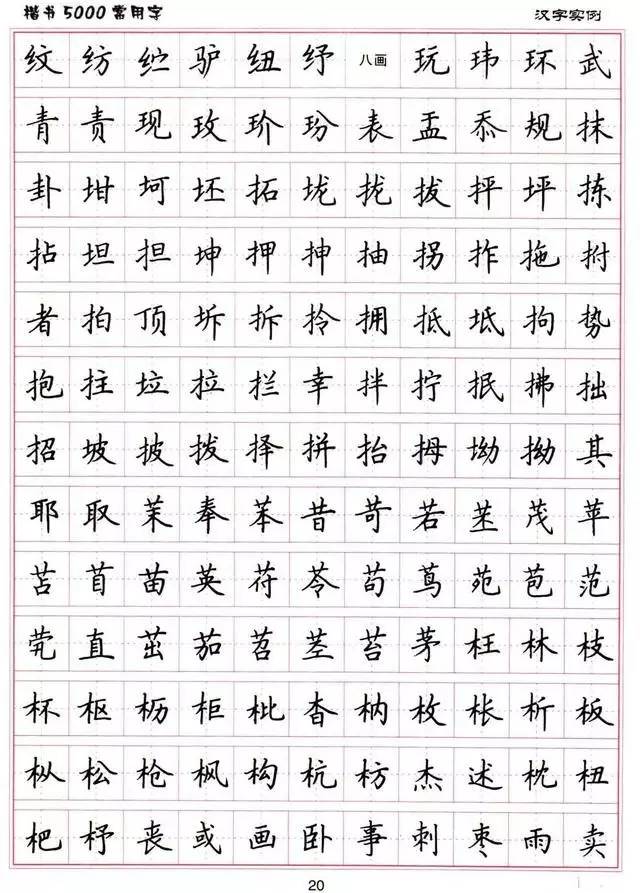 楷书5000常用字 汉字实例
纹 纺 纻 驴 纽 纾 八画 玩 玮 环 武
青 责 现 玫 玠 玢 表 盂 忝 规 抹
卦 坩 坷 坯 拓 垅 拢 拔 抨 坪 拣
拈 坦 担 坤 押 抻 抽 拐 拃 拖 拊
者 拍 顶 坼 拆 拎 拥 抵 坻 拘 势
抱 拄 垃 拉 拦 幸 拌 拧 抿 拂 拙
招 坡 披 拨 择 拚 抬 拇 坳 拗 其
耶 取 茉 奉 苯 昔 苛 若 茂 苹
苫 苜 苗 英 苻 苓 苟 茑 苑 苞 范
茕 直 茁 茄 苕 茎 苔 茅 枉 林 枝
杯 枢 枥 柜 枇 杳 枘 枚 枨 析 板
枞 松 枪 枫 构 杭 枋 杰 述 枕 杻
杷 杼 丧 或 画 卧 事 刺 枣 雨 卖
20